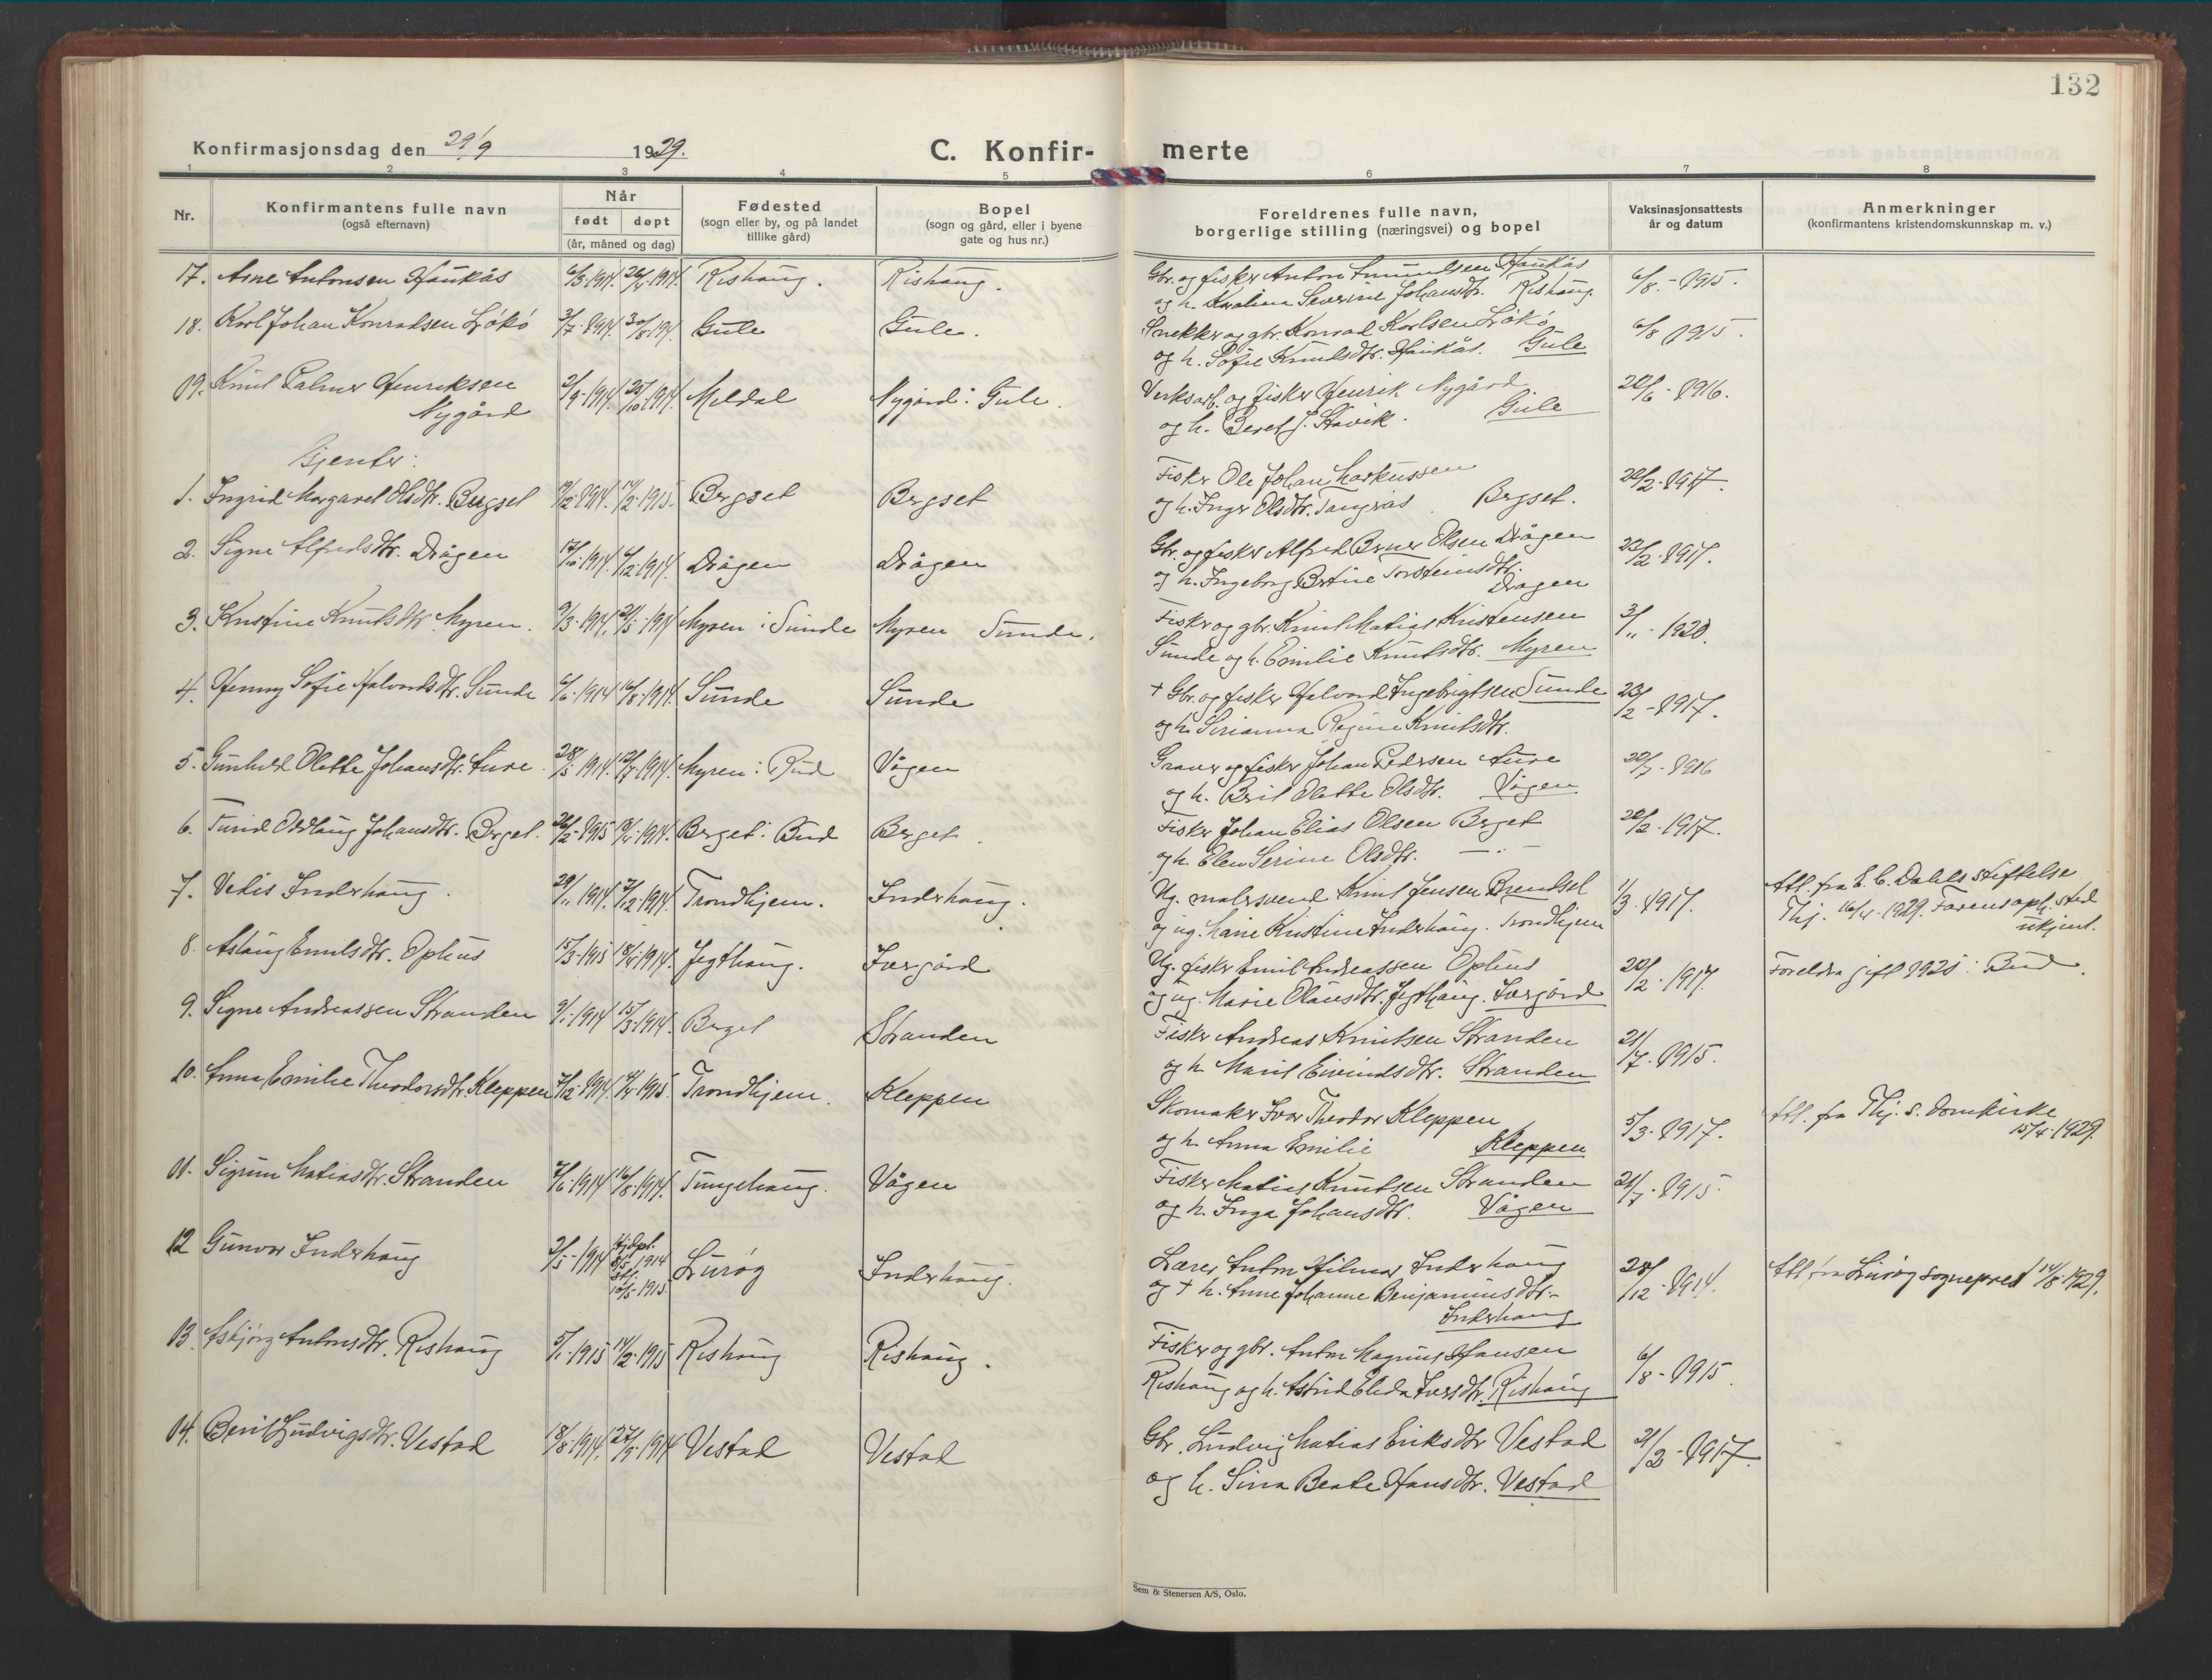 132
Konfirmasjonsdag den 29/9 1929.
C. Konfir-merte
1 2 3 4 5 6 7 8
Nr.
Konfirmantens fulle navn
(også efternavn)
Når
født døpt
(år, måned og dag)
Fødested
(sogn eller by, og på landet
tillike gård)
Bopel
(sogn og gård, eller i byene
gate og hus nr.)
Foreldrenes fulle navn,
borgerlige stilling (næringsvei) og bopel
Vaksinasjonsattests
år og datum
Anmerkninger
(konfirmantens kristendomskunnskap m. v.)
17. Arne Antonsen Haukås 1914. 1914. Rishaug. Rishaug. Gbr. og fisker Anton Haukås 6/8 - 1915.
og h. Severine Johansdtr. Rishaug.
18. Karl Johan Konradsen Løkø 3/7 1914. 30/8 Gule Gule. Snekker og gbr. Konrad Karlsen Løkø 6/8 1915.
og h. Sofie Knutsdtr. Haukås. Gule
19. Knut Palmer Henriksen 2/9 1914. 25/10 1914. Meldal Nygård i Gule. Verksarb. og fisker Henrik Nygård 22/6 - 1916.
Nygård og h. Beret J. Stavik. Gule
Gjenter:
1. Ingrid Margaret Olsdtr. Bergset 1914. 14/2 1915. Bergset Bergset Fisker Ole Johan Markussen 22/2 - 1917.
og h. Inger Olsdtr. Tangerås Bergset.
2. Signe Alfredsdtr. Drågen 1914. 1914. Drågen Drågen Gbr. og fisker Alfred Berner Olsen Drågen 23/2 - 1917.
og h. Ingeborg Bertine Torsteinsdtr.
Drågen
3. Kristine Knutsdtr. Myren. 9/3 1914. 21/5 1914 Myren i Sunde Myren Sunde. Fisker og gbr. Knut Matias Kristensen 3/11 - 1920.
Sunde og h. Emilie Knutsdtr. Myren
4. Henny Sofie Halvordsdtr. Sunde 6/6 1914 16/8 1914. Sunde Sunde + Gbr. og fisker Halvord Ingebrigtsen Sunde 23/2 - 1917.
og h. Regine Knutsdtr.
5. Gunhild Olette Johansdtr. Aure 28/5 1914. 12/7 1914. Myren i Bud Vågen Graver og fisker Johan Pedersen Aure 1916
og h. Berit Olette Olsdtr. Vågen
6. Turid Oddlaug Johansdtr. Berget. 26/2 1915 18/4 1914. Berget i Bud Berget. Fisker Johan Elias Olsen Berget 22/2 - 1917.
og h. Elen Serine Olsdtr. — . —
7. Vedis Inderhaug. 29/11 1914. 1914. Trondhjem. Inderhaug. Ug. malersvend Knut Jensen Brendsel 11/3 - 1917. Att. fra E. C. Dahls stiftelse
og ug. Marie Kristine Inderhaug. Trondhjem Thj. 16/4 - 1929. sted
ukjent.
8. Aslaug Emilsdtr. Ophus 15/3 1915 18/4 1914. Jegthaug. Ivergård Ug. fisker Emil Andreassen Ophus 22/2 - 1917. Foreldra gift 1925 i Bud.
og ug. Marie Olausdtr. Jegthaug. Ivergård
9. Signe Andreassen Stranden 9/1 1914 15/3 1914. Berget Stranden Fisker Andreas Knutsen Stranden 21/7 - 1915.
og h. Marit Eivindsdtr. Stranden
10. Anna Emilie Theodorsdtr. Kleppen 7/12 1914. 4/4 1915. Trondhjem. Kleppen Skomaker Ivar Theodor Kleppen 5/3 - 1917. Att. fra Thj. s. Domkirke
og h. Anna Emilie Kleppen 15/4 1929.
11. Sigrun Matiasdtr. Stranden 7/6 1914 16/8 1914. Tungehaug. Vågen Fisker Matias Knutsen Stranden 21/7 - 1915.
og h. Inga Johansdtr. Vågen
12 Gunvor Inderhaug 3/5 1914 Hjdpt. 1914 1915. Lurøy Inderhaug. Lærer Anton Hilmar Inderhaug 28/12 - 1914. Att fra Lurøy sogneprest 14/8 1929.
og + h. Anne Johanne Benjaminsdtr. -
Inderhaug
13. Asbjørg Antonsdtr. Rishaug 5/1 1915 14/2 1915 Rishaug Rishaug. Fisker og gbr. Anton Magnus Hansen 6/8 - 1915.
Rishaug og h. Astrid Elida Iversdtr. Rishaug
14. Berit Ludvigsdtr. Vestad 18/8 1914. 27/9 1914 Vestad Vestad Gbr. Ludvig Matias Eriksdtr Vestad 21/2 - 1917.
og h. Sina Beate Hansdtr. Vestad
Sem & Stenersen A/S, Oslo.